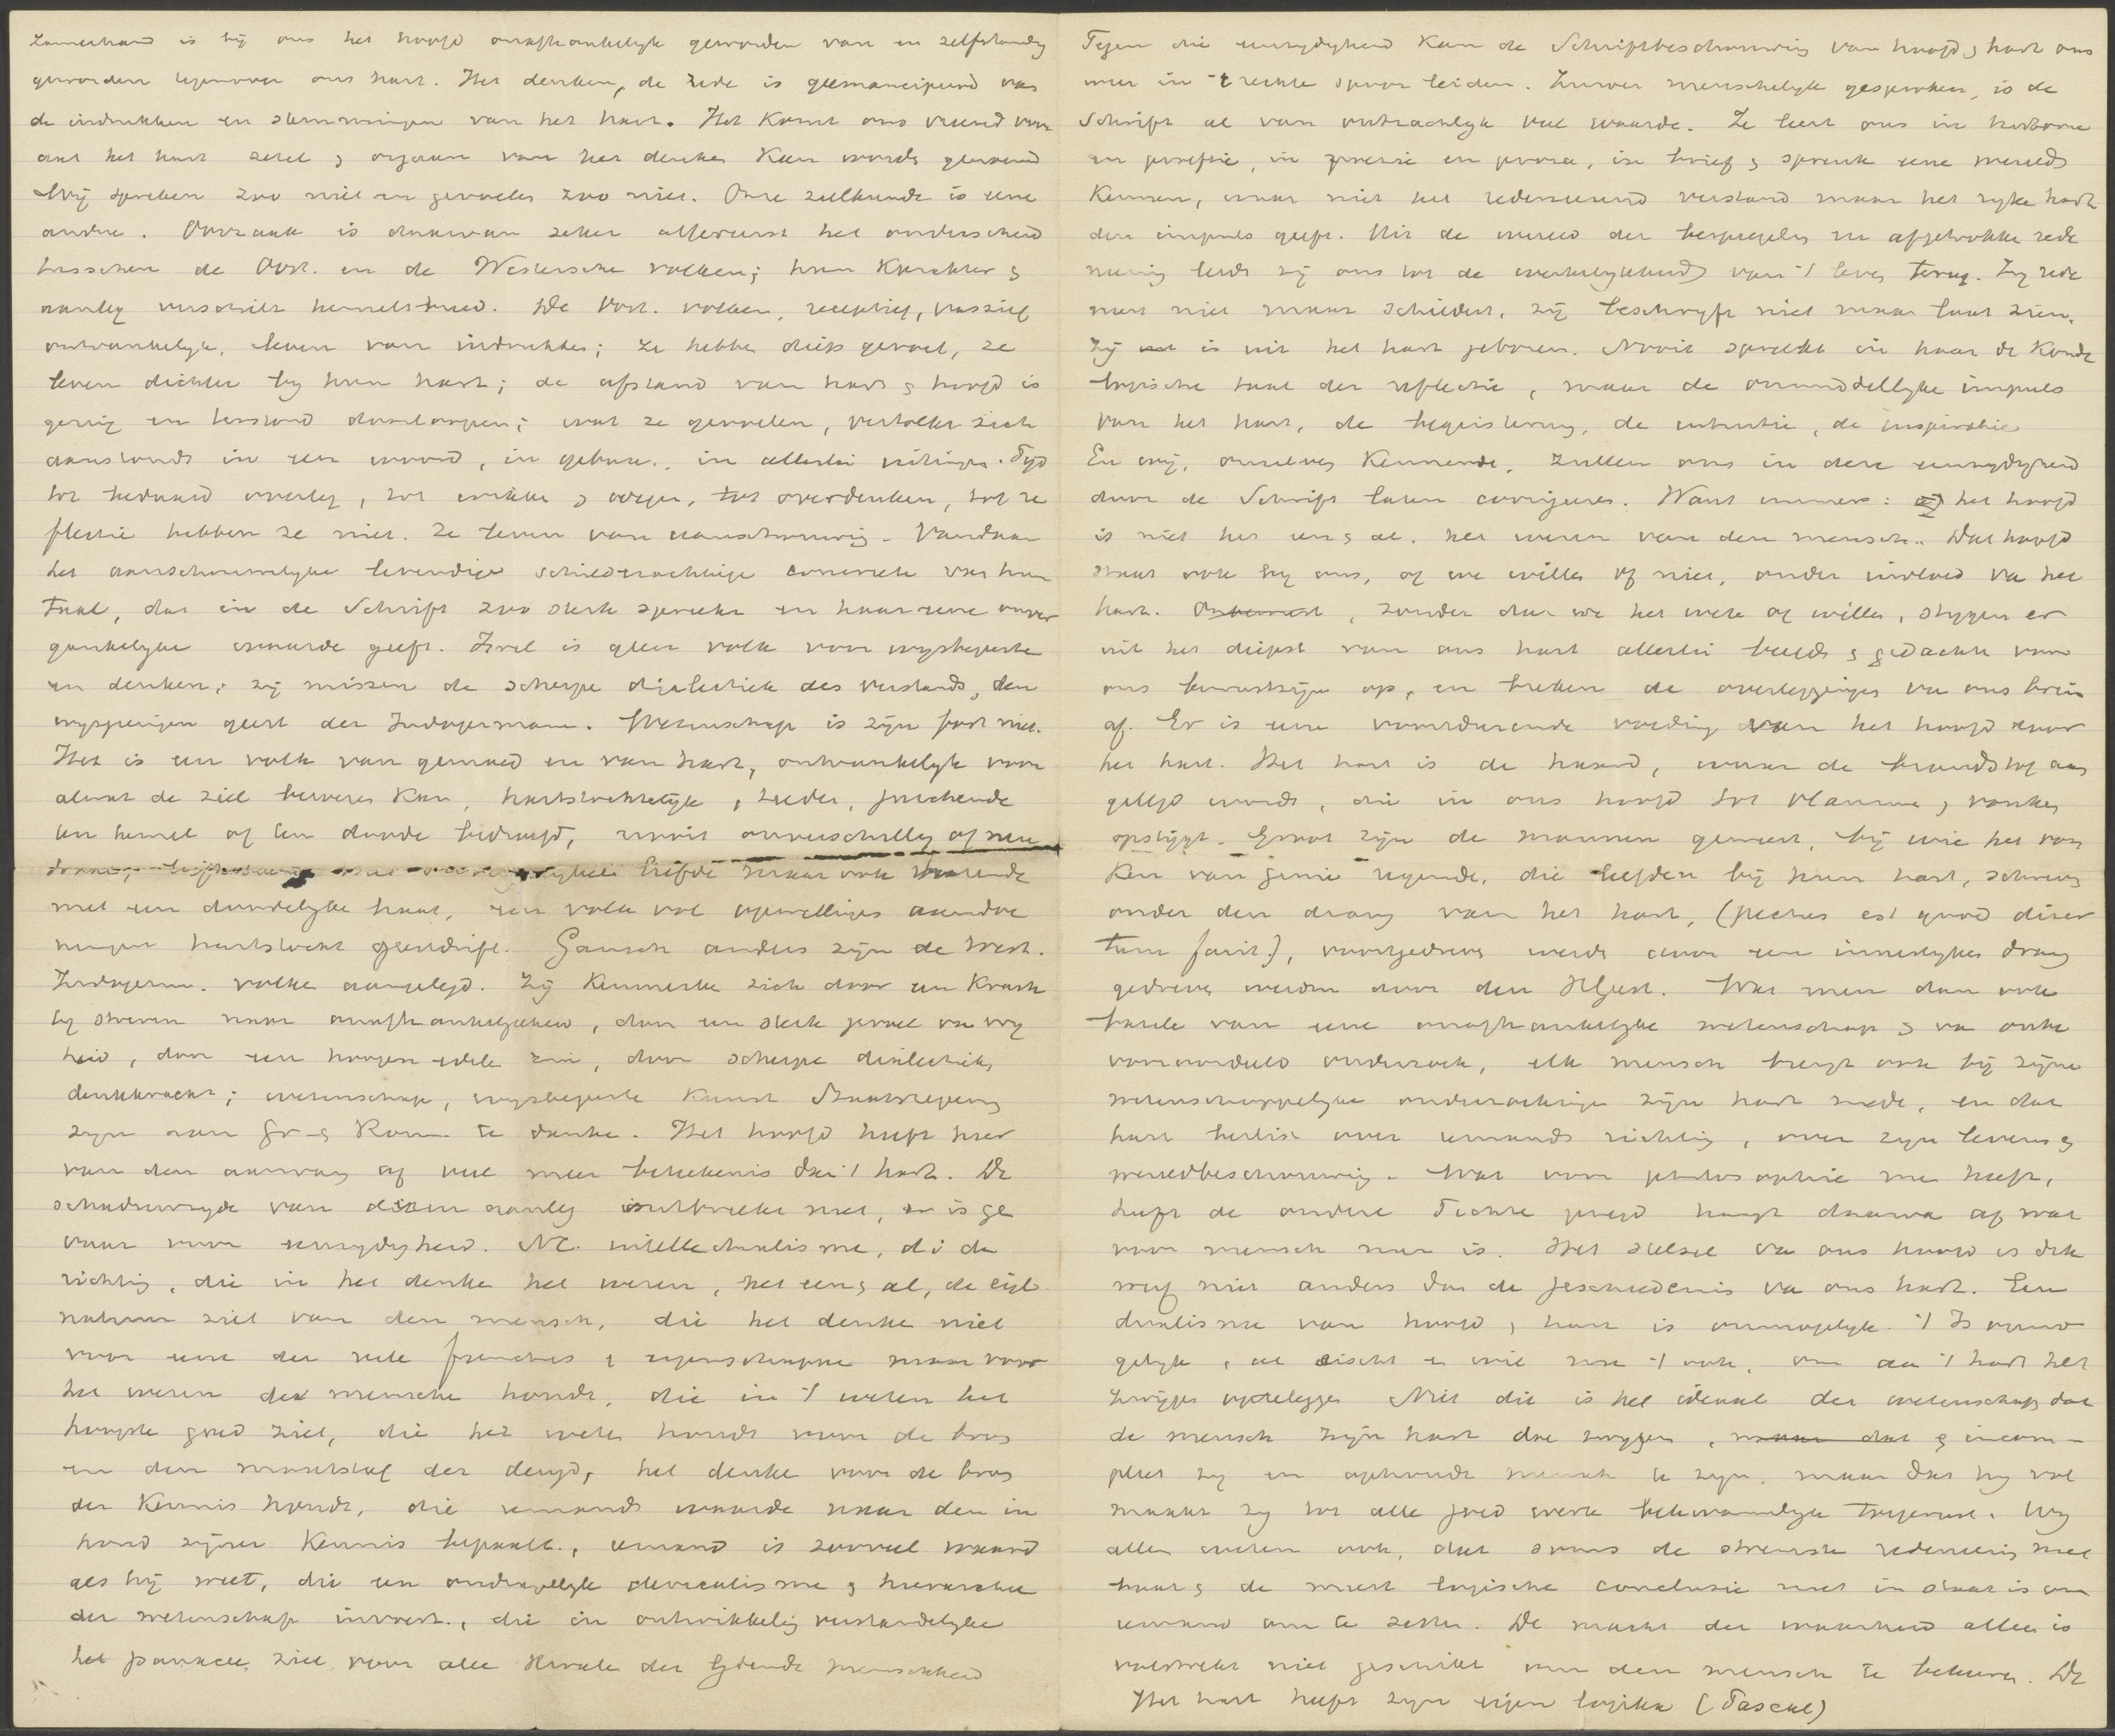 Zamerhand is bij ons het hoofd onafhankelijk geworden van en zelfstandig
geworden tegenover ons hart. Het denken, de rede is geëmancipeerd van
de indrukken en stemmingen van het hart. Het komt ons vreemd voor
dat het hart zetel & orgaan van het denken kan worden genoemd
Wij spreken zoo niet en gevoelen zoo niet. Onze zielkunde is eene
andre. Oorzaak is daarvan zeker allereerst het onderscheid
tusschen de Oost. en de Westersche volken; hun karakter &
aanleg verschilt hemelsbreed. De Oost. volken, receptief, passief
ontvankelijk, leven van indrukken; ze hebben diep gevoel, ze
leven dichter bij hun hart; de afstand van hart & hoofd is
gering en terstond doorloopen; wat ze gevoelen, vertolkt zich
aanstonds in een woord, in gebaar, in allerlei uitingen. Tijd
tot bedaard overleg, tot wikken & wegen, tot overdenken, tot re
flectie hebben ze niet. Ze leven van aanschouwing. Vandaar
het aanschouwelijke levendige schilderachtige concrete van hun
taal, dat in de Schrift zoo sterk spreekt en haar eene onver
gankelijke waarde geeft. Israel is geen volk voor wijsbegeerte
en denken; zij missen de scherpe dialectiek des verstands, den
wijsgeerigen geest der Indogermanen. Wetenschap is zijn fort niet.
Het is een volk van gemoed en van hart, ontvankelijk voor
alwat de ziel bewegen kan, hartstochtelijk, teeder, juichende
ten hemel of ten doode bedroefd, nooit onverschillig of neu
liefde maar ook hatende
met een doodelijke haat, een volk vol opwellingen aandoe
ningen hartstocht geestdrift. Gansch anders zijn de West.
Indogerm. volken aangelegd. Zij kenmerken zich door een krach
tig streven naar onafhankelijkheid, door een sterk gevoel van vrij
heid, door een hoogen edelen zin, door scherpe dialectiek,
denkkracht; wetenschap, wijsbegeerte kunst Staatsregeering
zijn aan Gr & Rom. te danken. Het hoofd heeft hier
van den aanvang af veel meer beteekenis dan 't hart. De
schaduwzijde van dezen aanleg ontbreekt niet, er is ge
vaar voor eenzijdigheid. Nl. intellectualisme, di de
richting, die in het denken het wezen, het een & al, de eigl
natuur ziet van den mensch, die het denken niet
voor eene der vele functies & eigenschappen maar voor
het wezen des menschen houdt, die in 't weten het
hoogste goed ziet, die het weten houdt voor de bron
en den maatstaf der deugd, het denken voor de bron
der kennis houdt, die iemands waarde naar den in
houd zijner kennis bepaalt, iemand is zooveel waard
als hij weet, die een ondragelijk clericalisme & hierarchie
der wetenschap invoert, die in ontwikkeling verstandelijke
het panacee ziet voor alle kwalen der lijdende menschheid
Tegen die eenzijdigheid kan de Schriftbeschouwing van hoofd & hart ons
weer in 't rechte spoor leiden. Zuiver menschelijk gesproken, is de
Schrift al van ontzachlijk veel waarde. Ze leert ons in historie
en profetie, in poezie en proza, in brief & spreuk eene wereld
kennen, waar niet het redeneerend verstand maar het rijke hart
den impuls geeft. Uit de wereld der bespiegeling en afgetrokken rede
neering leidt zij ons tot de werkelijkheid van 't leven terug. Zij rede
neert niet maar schildert, zij beschrijft niet maar laat zien,
zij is uit het hart geboren. Nooit spreekt in haar de koude
logische taal der reflectie, maar de onmiddellijke impuls
van het hart, de begeistering, de intuitie, de inspiratie
En wij, onszelven kennende, zullen ons in deze eenzijdigheid
door de Schrift laten corrigeeren. Want immers: het hoofd
is niet het een & al, het wezen van den mensch. Dat hoofd
staat ook bij ons, of we willen of niet, onder invloed van het
hart. Onbewust, zonder dat we het weten of willen, stijgen er
uit het diepst van ons hart allerlei beelden & gedachten voor
ons bewustzijn op, en breken de overleggingen van ons brein
af. Er is eene voortdurende voeding van het hoofd door
het hart. Het hart is de haard, waar de brandstof aan
gelegd wordt, die in ons hoofd tot vlammen & vonken
opstijgt. Groot zijn de mannen geweest, bij wie het von
ken van genie regende, die leefden bij hun hart, schreven
onder den drang van het hart, (pectus est quod diser
tum facit), voortgedreven werden door een innerlijken drang
gedreven werden door den HGeest. Wat men dan ook
bazele van eene onafhankelijke wetenschap & van onbe
vooroordeeld onderzoek, elk mensch brengt ook bij zijne
wetenschappelijke onderzoekingen zijn hart mede, en dat
hart beslist over iemands richting, over zijn levens &
wereldbeschouwing. Wat voor philosophie men heeft,
heeft de oudere Fichte gezegd hangt daarvan af wat
voor mensch men is. Het stelsel van ons hoofd is dik
werf niet anders dan de geschiedenis van ons hart. Een
dualisme van hoofd & hart is onmogelijk. 't Is onmo
gelijk, al eischt & wil men 't ook, om aan 't hart het
zwijgen opteleggen Niet dit is het ideaal der wetenschap dat
de mensch zijn hart doe zwijgen, maar dat & incom-
pleet zij en ophoude mensch te zijn, maar dat hij vol
maakt zij tot alle goed werk bekwamelijk toegerust. Wij
allen weten ook, dat soms de strengste redeneering met
haar & de meest logische conclusie niet in staat is om
iemand om te zetten. De macht der waarheid alleen is
volstrekt niet geschikt om den mensch te bekeeren. De
Het hart heeft zijn eigen logika (Pascal)